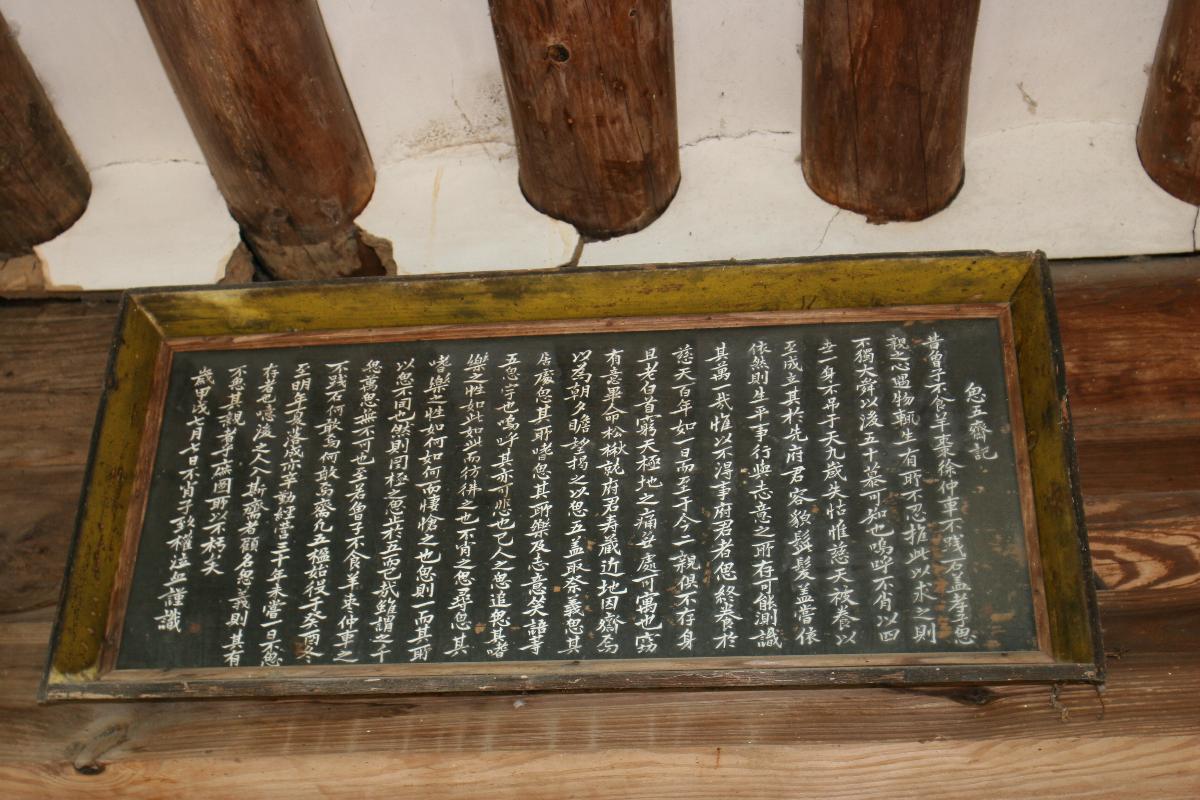 思五齋記
昔曾子不食羊棗徐仲車不踐石盖孝子思
親之心遇物輒生有所不忍推此以求之則
不獨大舜以後五十慕可知也嗚呼不肖以四
世一身不吊于天九歲失怙惟慈天被養以
至成立其於先府君容貌鬚髮盖嘗依
依然則生平事行與志意之所存可能測識
其萬一哉惟以不得事府君者思終養於
慈天百年如一日而至于今二親俱不存身
且老白首窮天極地之痛無處可寓也竊
有意畢命松楸託府君壽藏近地因齋焉
以為朝夕瞻望揭之以思五盖取祭義思其
居處思其所嗜思其所樂及志意笑語等
五思字也嗚呼其亦可悲也已人之思追思其嗜
樂之性如此如此而彷彿之也不肖之思尋思其
嗜樂之性如何如何而悽愴之也思則一而其所
以思不同也然則罔極之思止於五而已哉雖謂之千
思萬思無不可也至若魯子不食羊棗仲車之
不踐石何敢焉何敢焉齋凡五楹始役于癸丙冬
至明年亥落成亦辛勤經營三十年來嘗一日不思
存者也噫後之人入斯齋者顧名思義則其有
不思其親者乎庶圖所以不朽矣
歲甲戌七月七日不肖子致權泣血謹識